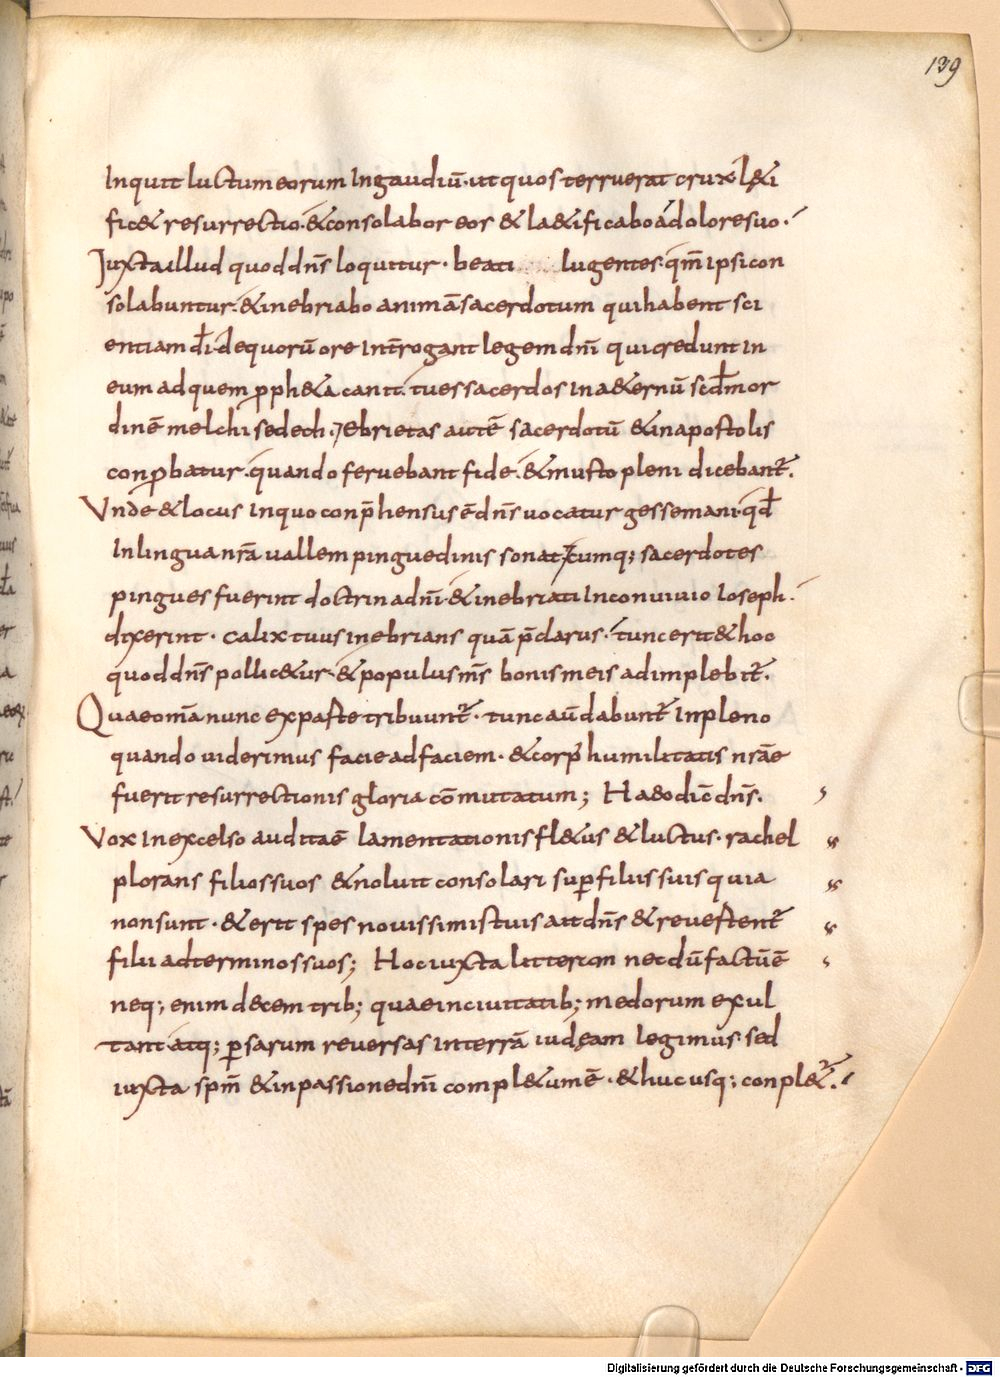 139
Inquit luctum eorum In gaudiū· ut quos terruerat crux· l&i
fic& resurrectio· & consolabor eos & la&ificabo a dolore suo·
Iuxta illud quod dn̄s loquitur· beati lugentes· qm̄ ipsi con
solabuntur· & inebriabo animā sacerdotum qui habent sci
entiam dī· de quorū ore Int̄rogant legem dn̄i qui credunt in
eum ad quem pph&a canit· tu es sacerdos in a&ernū scd̄m or
dinē melchisedech· ebrietas autē sacerdotū & in apostolis
conpbatur· quando feruebant fide· & musto pleni dicebant̄·
Vnde & locus In quo conp̄hensus ē dn̄s uocatur gessemani· qd̄
In lingua nr̄a uallem pinguedinis sonat· cumq; sacerdotes
pingues fuerint doctrina dn̄i· & inebriati In conuiuio Ioseph·
dixerint· calix tuus inebrians quā p̄clarus· tunc erit & hoc
quod dn̄s pollic&ur· & populus m̄s bonis meis adimplebit̄·
Quae om̄a nunc ex parte tribuunt̄· tunc aū dabunt̄ In pleno
quando uiderimus facie ad faciem· & corp̄ humilitatis nr̄ae
fuerit resurrectionis gloria cōmutatum; Haec dic̄ dn̄s·
Vox In excelso audita ē lamentationis fl&us & luctus· rachel
plorans filios suos & noluit consolari sup filiis suis quia
non sunt· & erit spes nouissimis tuis ait dn̄s & reuertent̄
filii ad terminos suos; Hoc iuxta litteram necdū factū ē
neq; enim decem trib; quae in ciuitatib; medorum exul
tant atq; psarum reuersas In terrā iudęam legimus· sed
iuxta spm̄ & in passione dn̄i compl&um ē· & hucusq; conpl&̄·
Digitalisierung gefördert durch die Deutsche Forschungsgemeinschaft - DFG